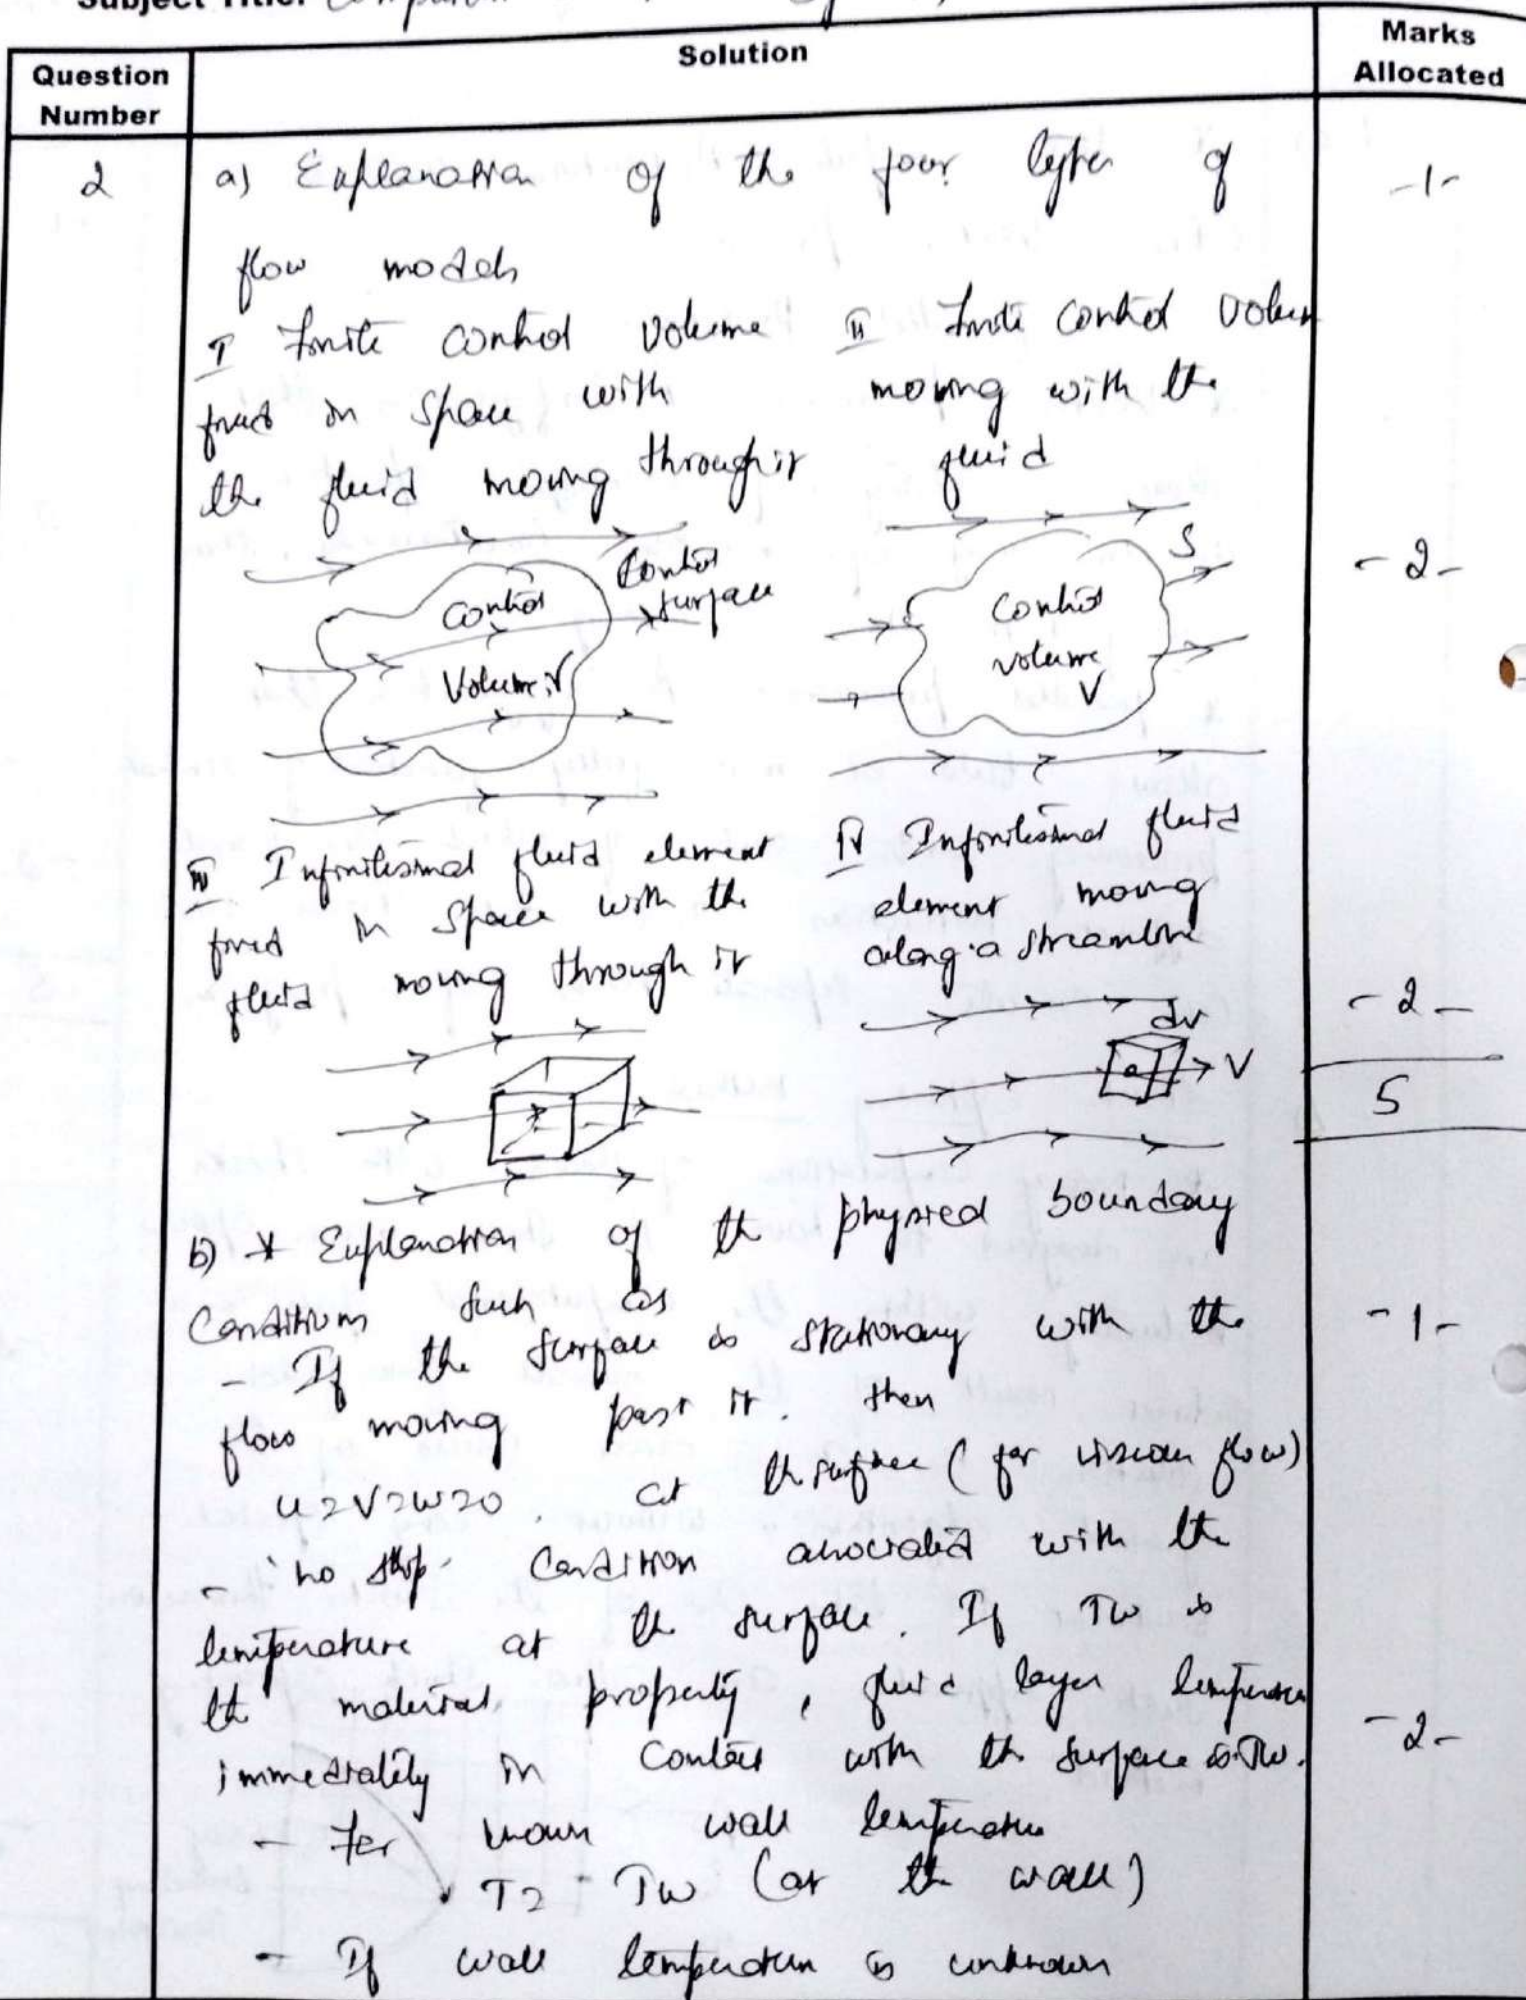 Subject Title:
Question Number
Solution
Marks Allocated
2
a) Explanation of the four types of
-1-
flow models
I Finite control volume
fixed in space with
the fluid moving through it
II Finite control volum
moving with the
fluid
Control surface
Control
Volume, V
S
Control
volume
V
-2-
III Infinitesimal fluid element
fixed in space with the
fluid moving through it
IV Infinitesimal fluid
element moving
along a streamline
dv
V
-2-
5
b) * Explanation of the physical boundary
Conditions such as
-1-
- If the surface is stationary with the
flow moving past it. then
u=V=w=0. at the surface (for viscous flow)
- 'no slip' Condition associated with the
temperature at the surface. If Tw is
the material property, fluid layer temperature
immediately in contact with the surface is Tw.
-2-
- For known wall temperature
T= Tw (at the wall)
- If wall temperature is unknown